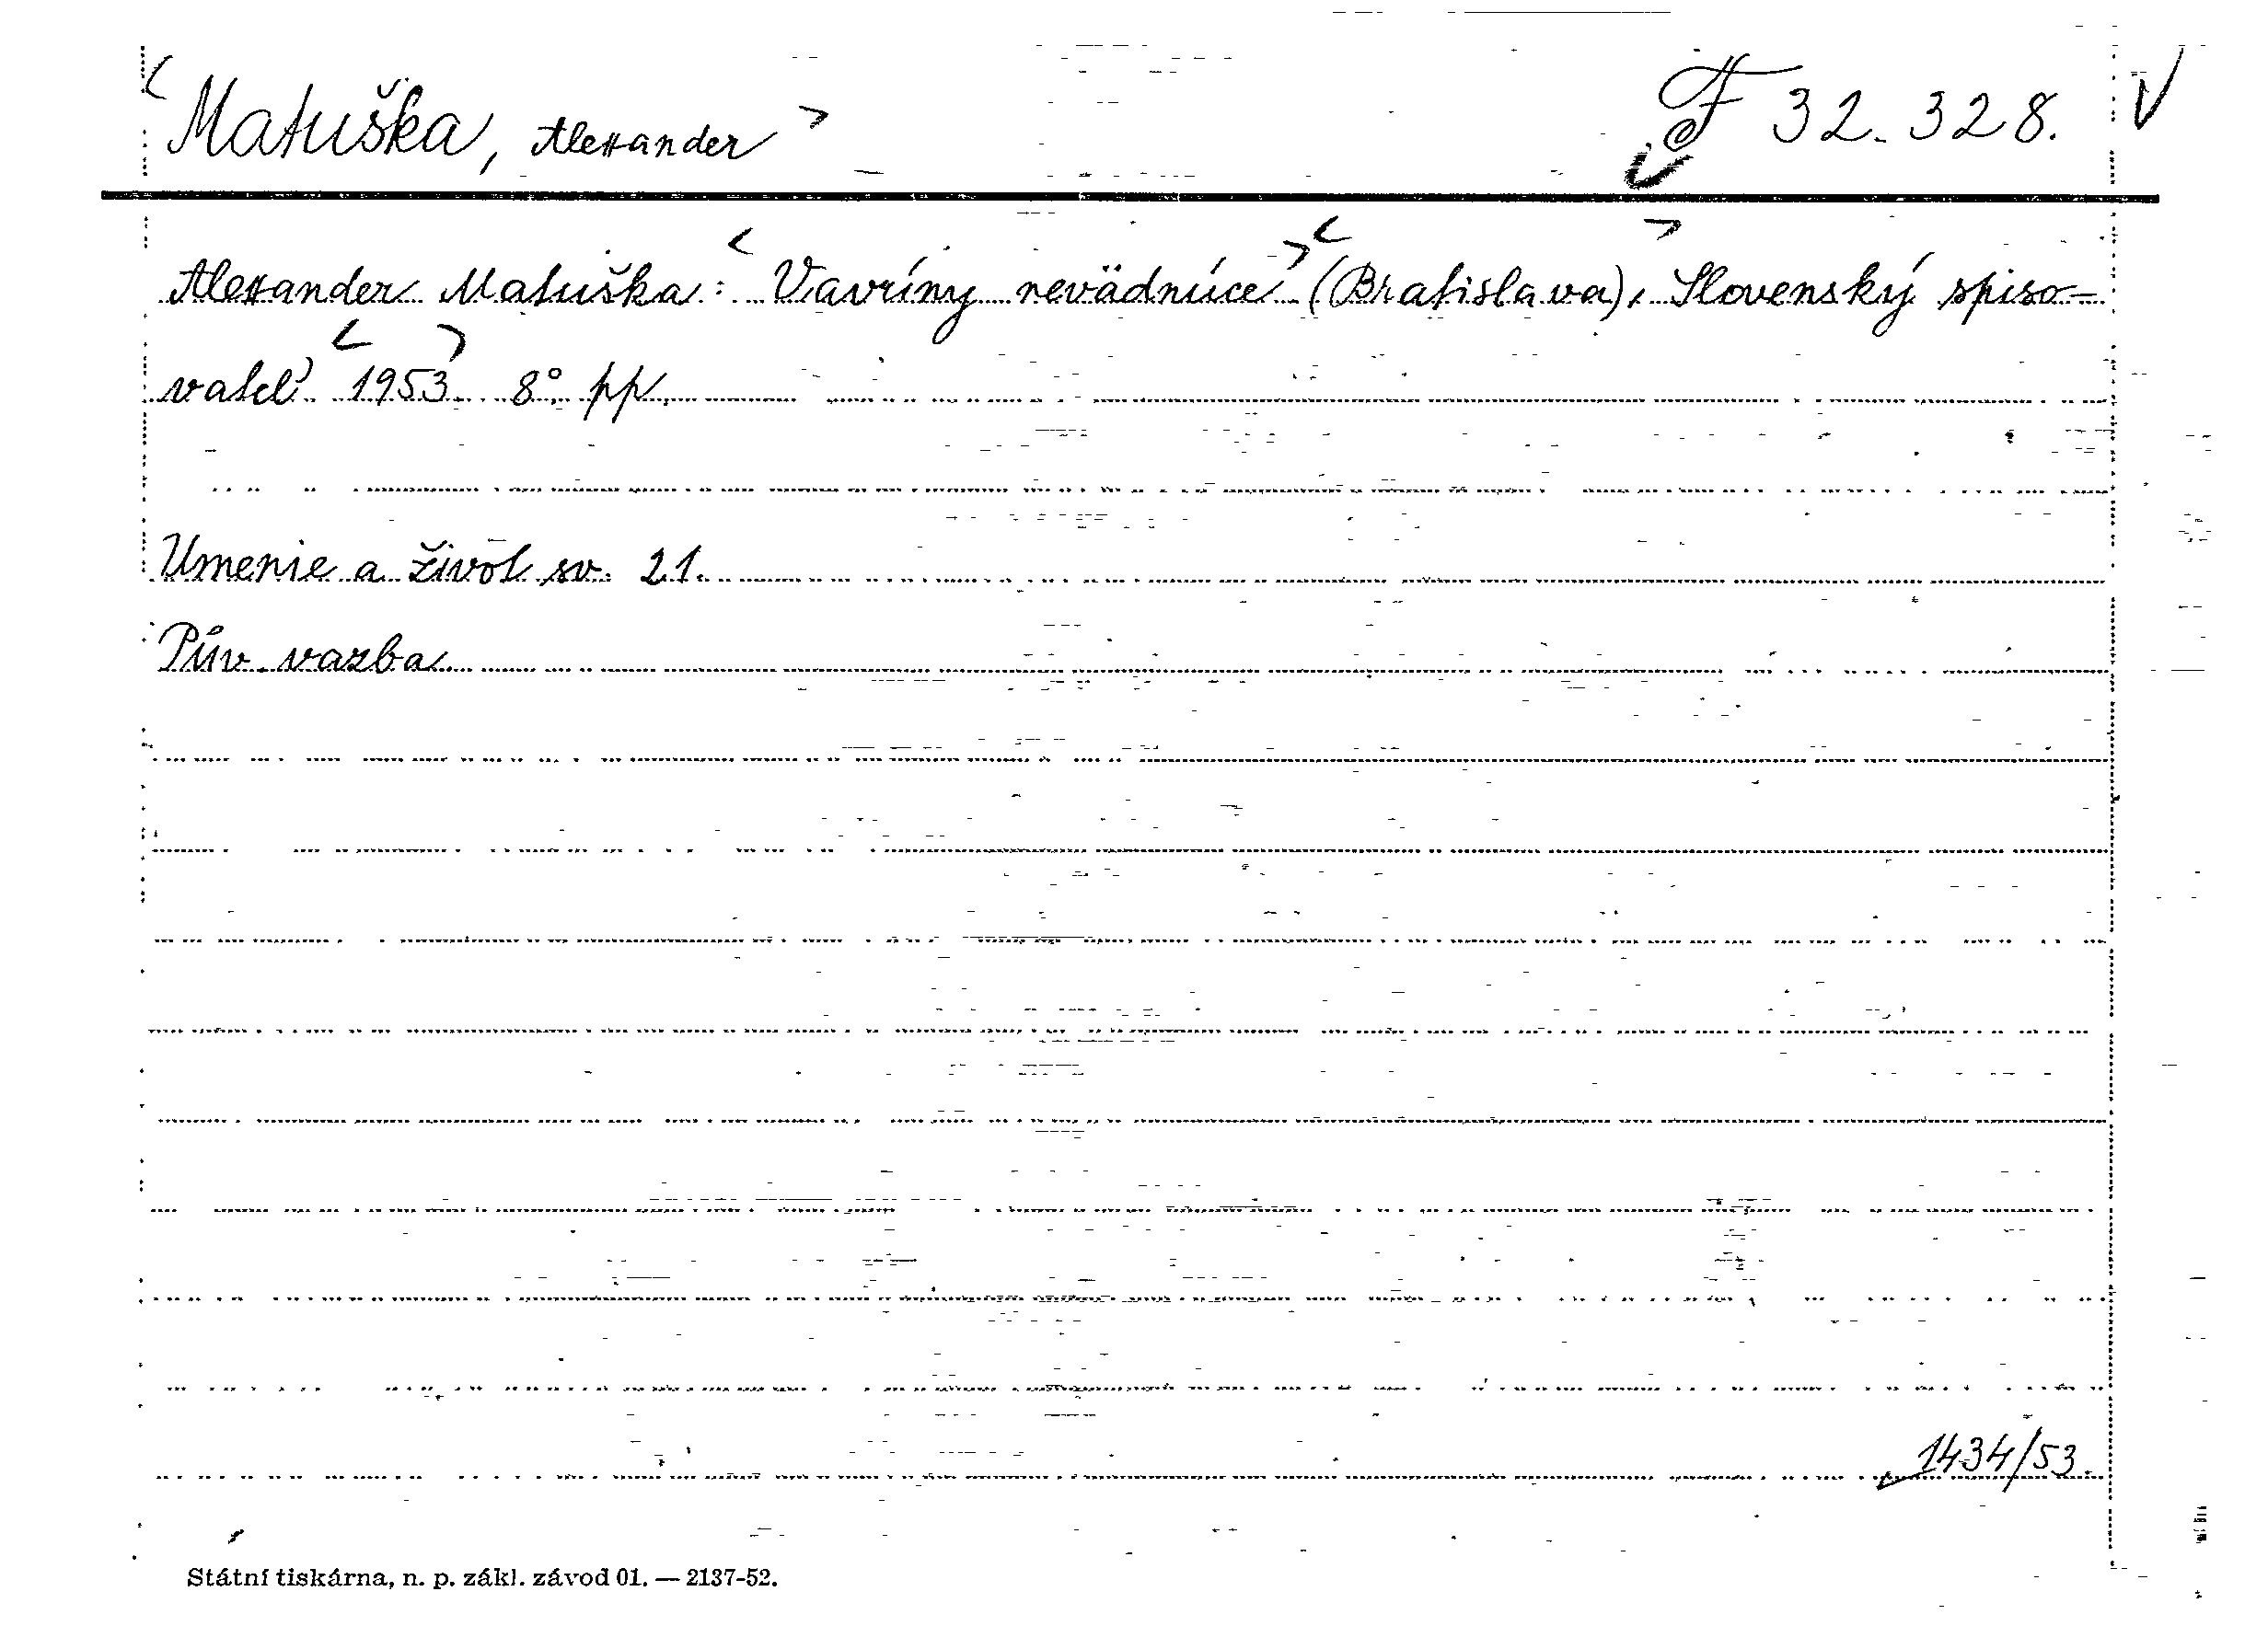 Matuška, Alexander F 32.328. V
Alexander Matuška: Vavríny nevädnúce (Bratislava), Slovenský spiso-
vateľ 1953. 8°. pp.
Umenie a život sv. 21.
Pův. vazba.
1434/53.
Státní tiskárna, n. p. zákl. závod 01. — 2137-52.